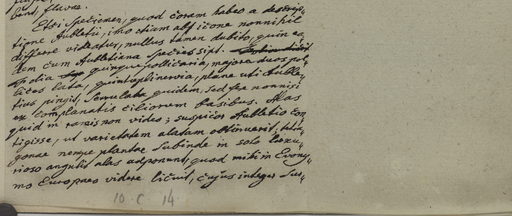 bent, flavae.
Etsi Specimen, quod coram habeo a descrip-
tione Aubletii, imo etiam ab icone nonnihil
differre videatur, nullus tamen dubito, quin ea-
dem cum Aubletiana Species sit.
Folia quinquepollicaria, majora duos pol-
lices lata, quintuplinervia, plane uti Auble-
tius pingit, Serrulata quidem, sed fere nonnisi
ex complanatis ciliorum basibus. Alas
quid in ramis non video; suspicor Aubletio con-
tigisse, ut varietatem alatam obtinuerit; tetra-
gonae nempe plantae Subinde in solo luxu-
rioso angulis alas adponunt, quod mihi in Evony-
mo Europaeo videre licuit, cujus integer Sus-
10 C 14